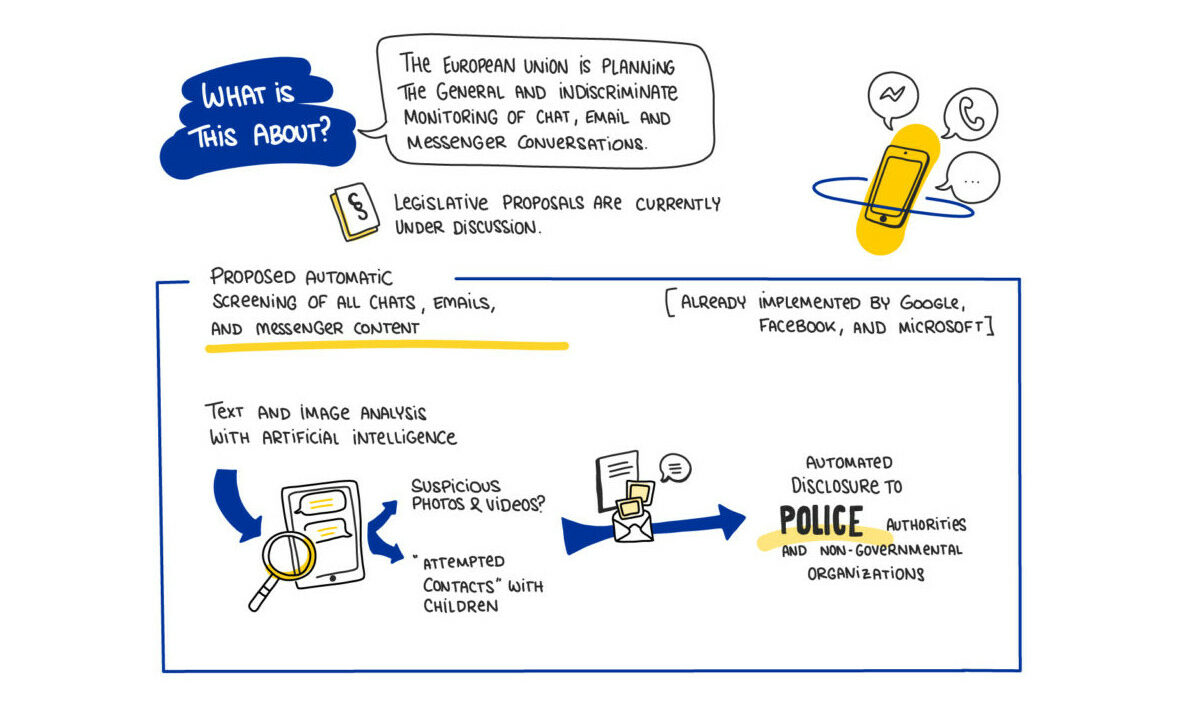 WHAT iS
THIS ABOUT?
THE EUROPEAN UNION IS PLANNING
THE GENERAL AND INDISCRIMINATE
MONITORING OF CHAT, EMAIL AND
MESSENGER CONVERSATIONS.
§
LEGISLATIVE PROPOSALS ARE CURRENTLY
UNDER DISCUSSION.
...
PROPOSED AUTOMATIC
SCREENING OF ALL CHATS, EMAILS,
AND MESSENGER CONTENT
[ALREADY IMPLEMENTED BY GOOGLE,
FACEBOOK, AND MICROSOFT]
TEXT AND IMAGE ANALYSIS
WITH ARTIFICIAL INTELLIGENCE
SUSPICIOUS
PHOTOS & VIDEOS?
"ATTEMPTED
CONTACTS" WITH
CHILDREN
AUTOMATED
DISCLOSURE TO
POLICE AUTHORITIES
AND NON-GOVERNMENTAL
ORGANIZATIONS